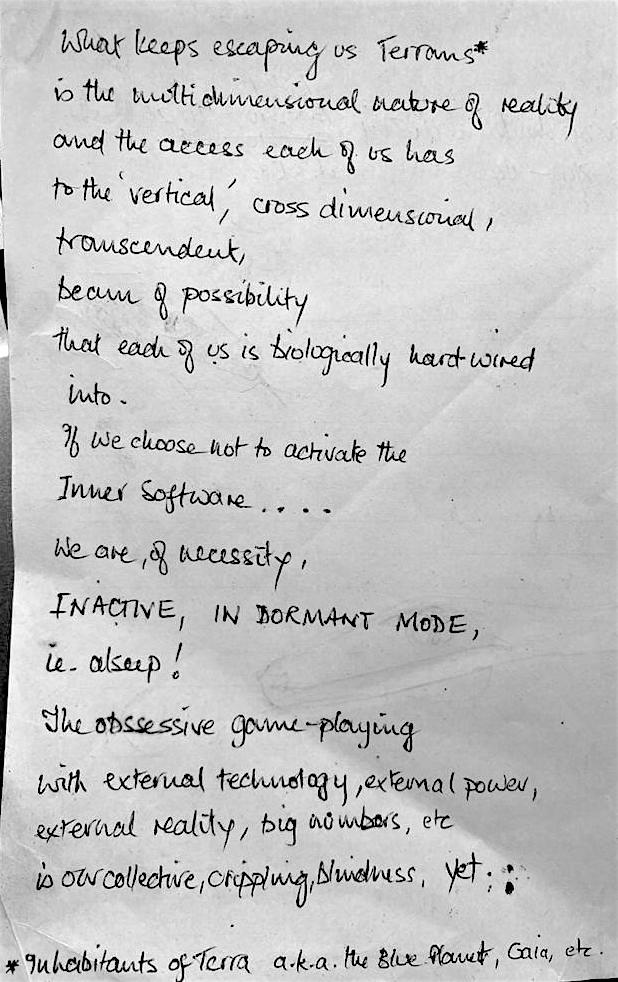 What keeps escaping us Terrans*
is the multidimensional nature of reality
and the access each of us has
to the 'vertical', cross dimensional,
transcendent,
beam of possibility
that each of us is biologically hard-wired
into.
If we choose not to activate the
Inner Software....
We are, of necessity,
INACTIVE, IN DORMANT MODE,
ie. alseep!
The obssessive game-playing
with external technology, external power,
external reality, big numbers, etc
is our collective, crippling, blindness, yet:
*Inhabitants of Terra a.k.a. the Blue Planet, Gaia, etc.